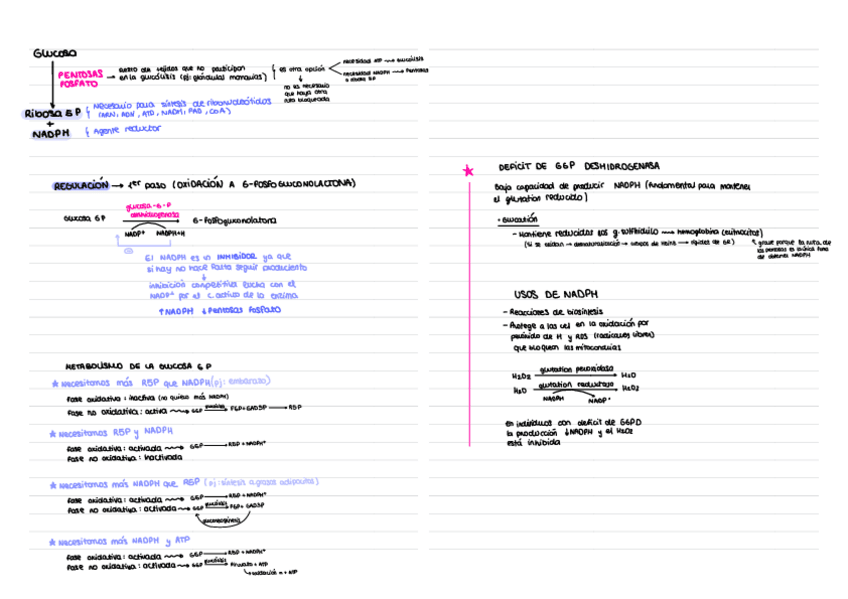 Glucosa
PENTOSAS FOSFATO → dentro de tejidos que no participan
en la glucólisis (pj: glándulas mamarias)
es otra opción
necesidad ATP → glucólisis
necesidad NADPH → Pentosas
o ribosa 5P
no es necesario
que haya otra
ruta bloqueada
Ribosa 5P
+
NADPH
Necesario para síntesis de ribonucleótidos
(ARN, ADN, ATP, NADH, FAD, CoA)
Agente reductor
REGULACIÓN → 1er paso (OXIDACIÓN A 6-FOSFOGLUCONOLACTONA)
glucosa-6-P
deshidrogenasa
Glucosa 6P
6-fosfogluconolactona
NADP+ NADPH+H
El NADPH es un INHIBIDOR ya que
si hay no hace falta seguir produciento
inhibición competitiva lucha con el
NADP+ por el c. activo de la enzima
↑NADPH ↓Pentosas fosfato
METABOLISMO DE LA GLUCOSA 6P
★ Necesitamos más R5P que NADPH (pj: embarazo)
Fase oxidativa: inactiva (no quiero más NADPH)
Fase no oxidativa: activa → G6P → F6P+GAD3P → R5P
★ Necesitamos R5P y NADPH
Fase oxidativa: activada → G6P → R5P + NADPH+
Fase no oxidativa: inactivada
★ Necesitamos más NADPH que R5P (pj: síntesis a.grasos adipocitos)
Fase oxidativa: activada → G6P → R5P + NADPH+
Fase no oxidativa: activada → G6P → F6P + GAD3P
gluconeogénesis
★ Necesitamos más NADPH y ATP
Fase oxidativa: activada → G6P → R5P + NADPH+
Fase no oxidativa: activada → G6P → Piruvato + ATP
★ DEFICIT DE G6P DESHIDROGENASA
Baja capacidad de producir NADPH (fundamental para mantener
el glutation reducido)
• GLUTATIÓN
- Mantiene reducidos los g. sulfhidrilo → hemoglobina (eritrocitos)
(Si se oxidan → desnaturalización → cuerpos de Heinz → rigidez de GR)
grave porque la ruta de
las pentosas es la única forma
de obtener NADPH
USOS DE NADPH
- Reacciones de biosíntesis
- Protege a las cel en la oxidación por
peróxido de H y ROS (radicales libres)
que bloquean las mitocondrias
H2O2 glutation peroxidasa → H2O
H2O glutation reductasa → H2O2
NADPH NADP+
en individuos con deficit de G6PD
la producción ↓NADPH y el H2O2
está inhibida